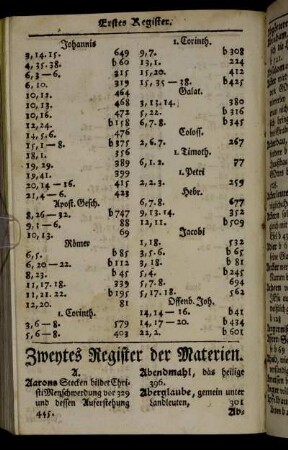 Erstes Register.
Johannis
3, 14. 15. 649
4, 35. 38. b 60
6, 3 — 6. 315
6, 10. 319
10, 13. 464
10, 13. 468
10, 16. 472
12, 24. b 158
14, 5. 6. 476
15, 1 — 8. b 375
18, 1. 356
19, 29. 389
19, 41. 423
20, 14 — 16. b 415
21, 4 — 6.
Apost. Gesch.
8, 26 — 32. b 747
9, 1 — 6. 88
10, 13. 69
Römer
6, 5. b 85
6, 20 — 22. b 112
8, 23. b 45
11, 17. 18. b 339
11, 21. 22. b 195
12, 20. 81
1. Corinth.
3, 6 — 8. 579
5, 6 — 8. 403
1. Corinth.
9, 7. b 308
13, 1. 214
15, 20. 412
15, 35 — 38. b 425
Galat.
3, 13. 14. 380
5, 22. b 316
6, 7. 8. b 345
Coloss.
2, 6. 7. b 267
1. Timoth.
6, 1. 2. 77
1. Petri
2, 2. 3. 259
Hebr.
6, 7. 8. b 677
9, 13. 14. 352
12, 11. b 509
Jacobi
1, 18. 532
3, 5. 6. b 65
3, 18. b 81
5, 4. b 245
5, 7. 8. b 694
5, 17. 18. 562
Offenb. Joh.
14, 14 — 16. b 41
14, 17 — 20. b 434
22, 2. b 601
Zweytes Register der Materien.
A.
Aarons Stecken bildet Chri-
sti Menschwerdung vor 329
und dessen Auferstehung
445.
Abendmahl, das heilige
396.
Aberglaube, gemein unter
Landleuten, 301
Ab-